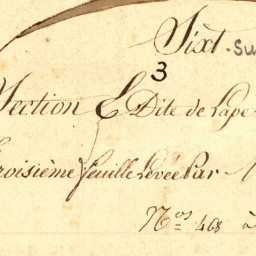 Sixt - su
3
Section E Dite de Lape
roisième feuille Levée Par
Nos 468 à